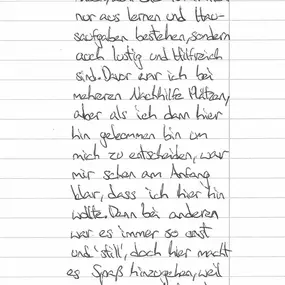 nur aus lernen und Hau-
saufgaben bestehen, sondern
auch lustig und Hilfreich
sind. Davor war ich bei
meheren Nachhilfe Plätzen,
aber als ich dann hier
hin gekommen bin um
mich zu entscheiden, war
mir schon am Anfang
klar, dass ich hier hin
wollte. Denn bei anderen
war es immer so ernst
und 'still', doch hier macht
es Spaß hinzugehen, weil